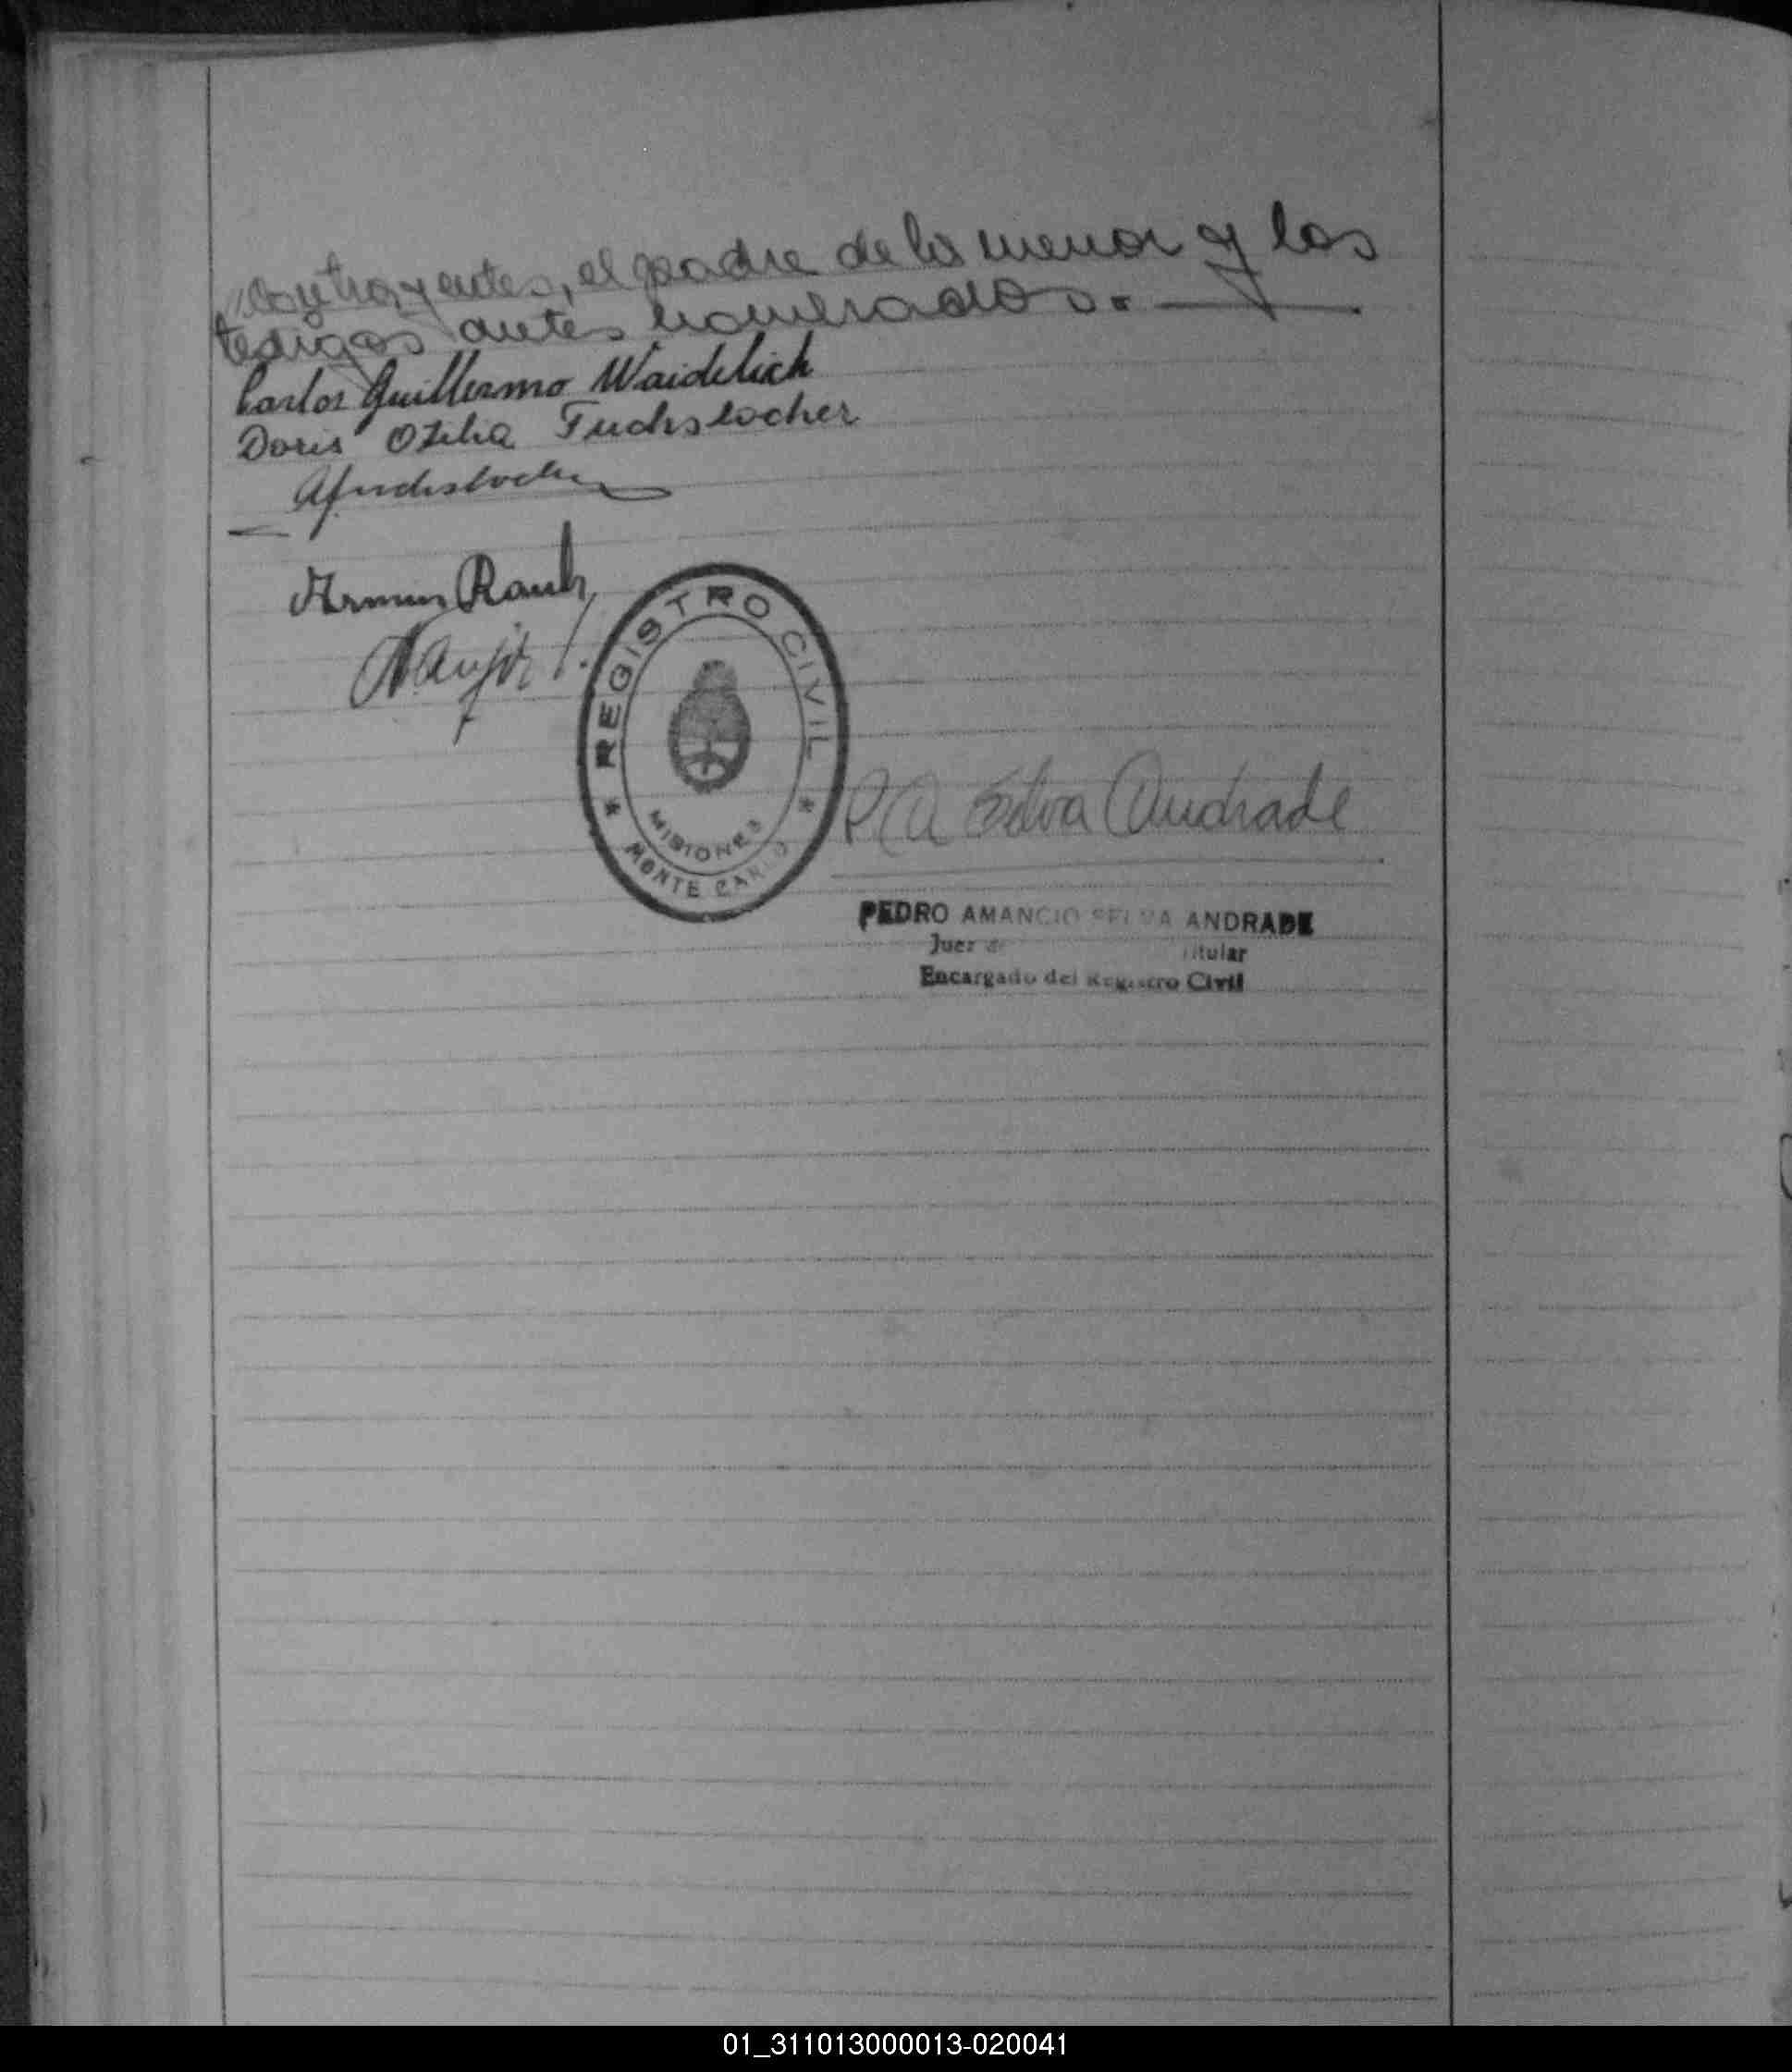 //contrayentes, el padre de la menor y los
testigos antes nombrados.
Carlos Guillermo Waidelich
Doris Otilia Fuchslocher
AFuchslocher
Armin Rauh
REGISTRO CIVIL
MISIONES
MONTE CARLO
PA Selva Andrade
PEDRO AMANCIO SELVA ANDRADE
Juez Titular
Encargado del Registro Civil
01_311013000013-020041